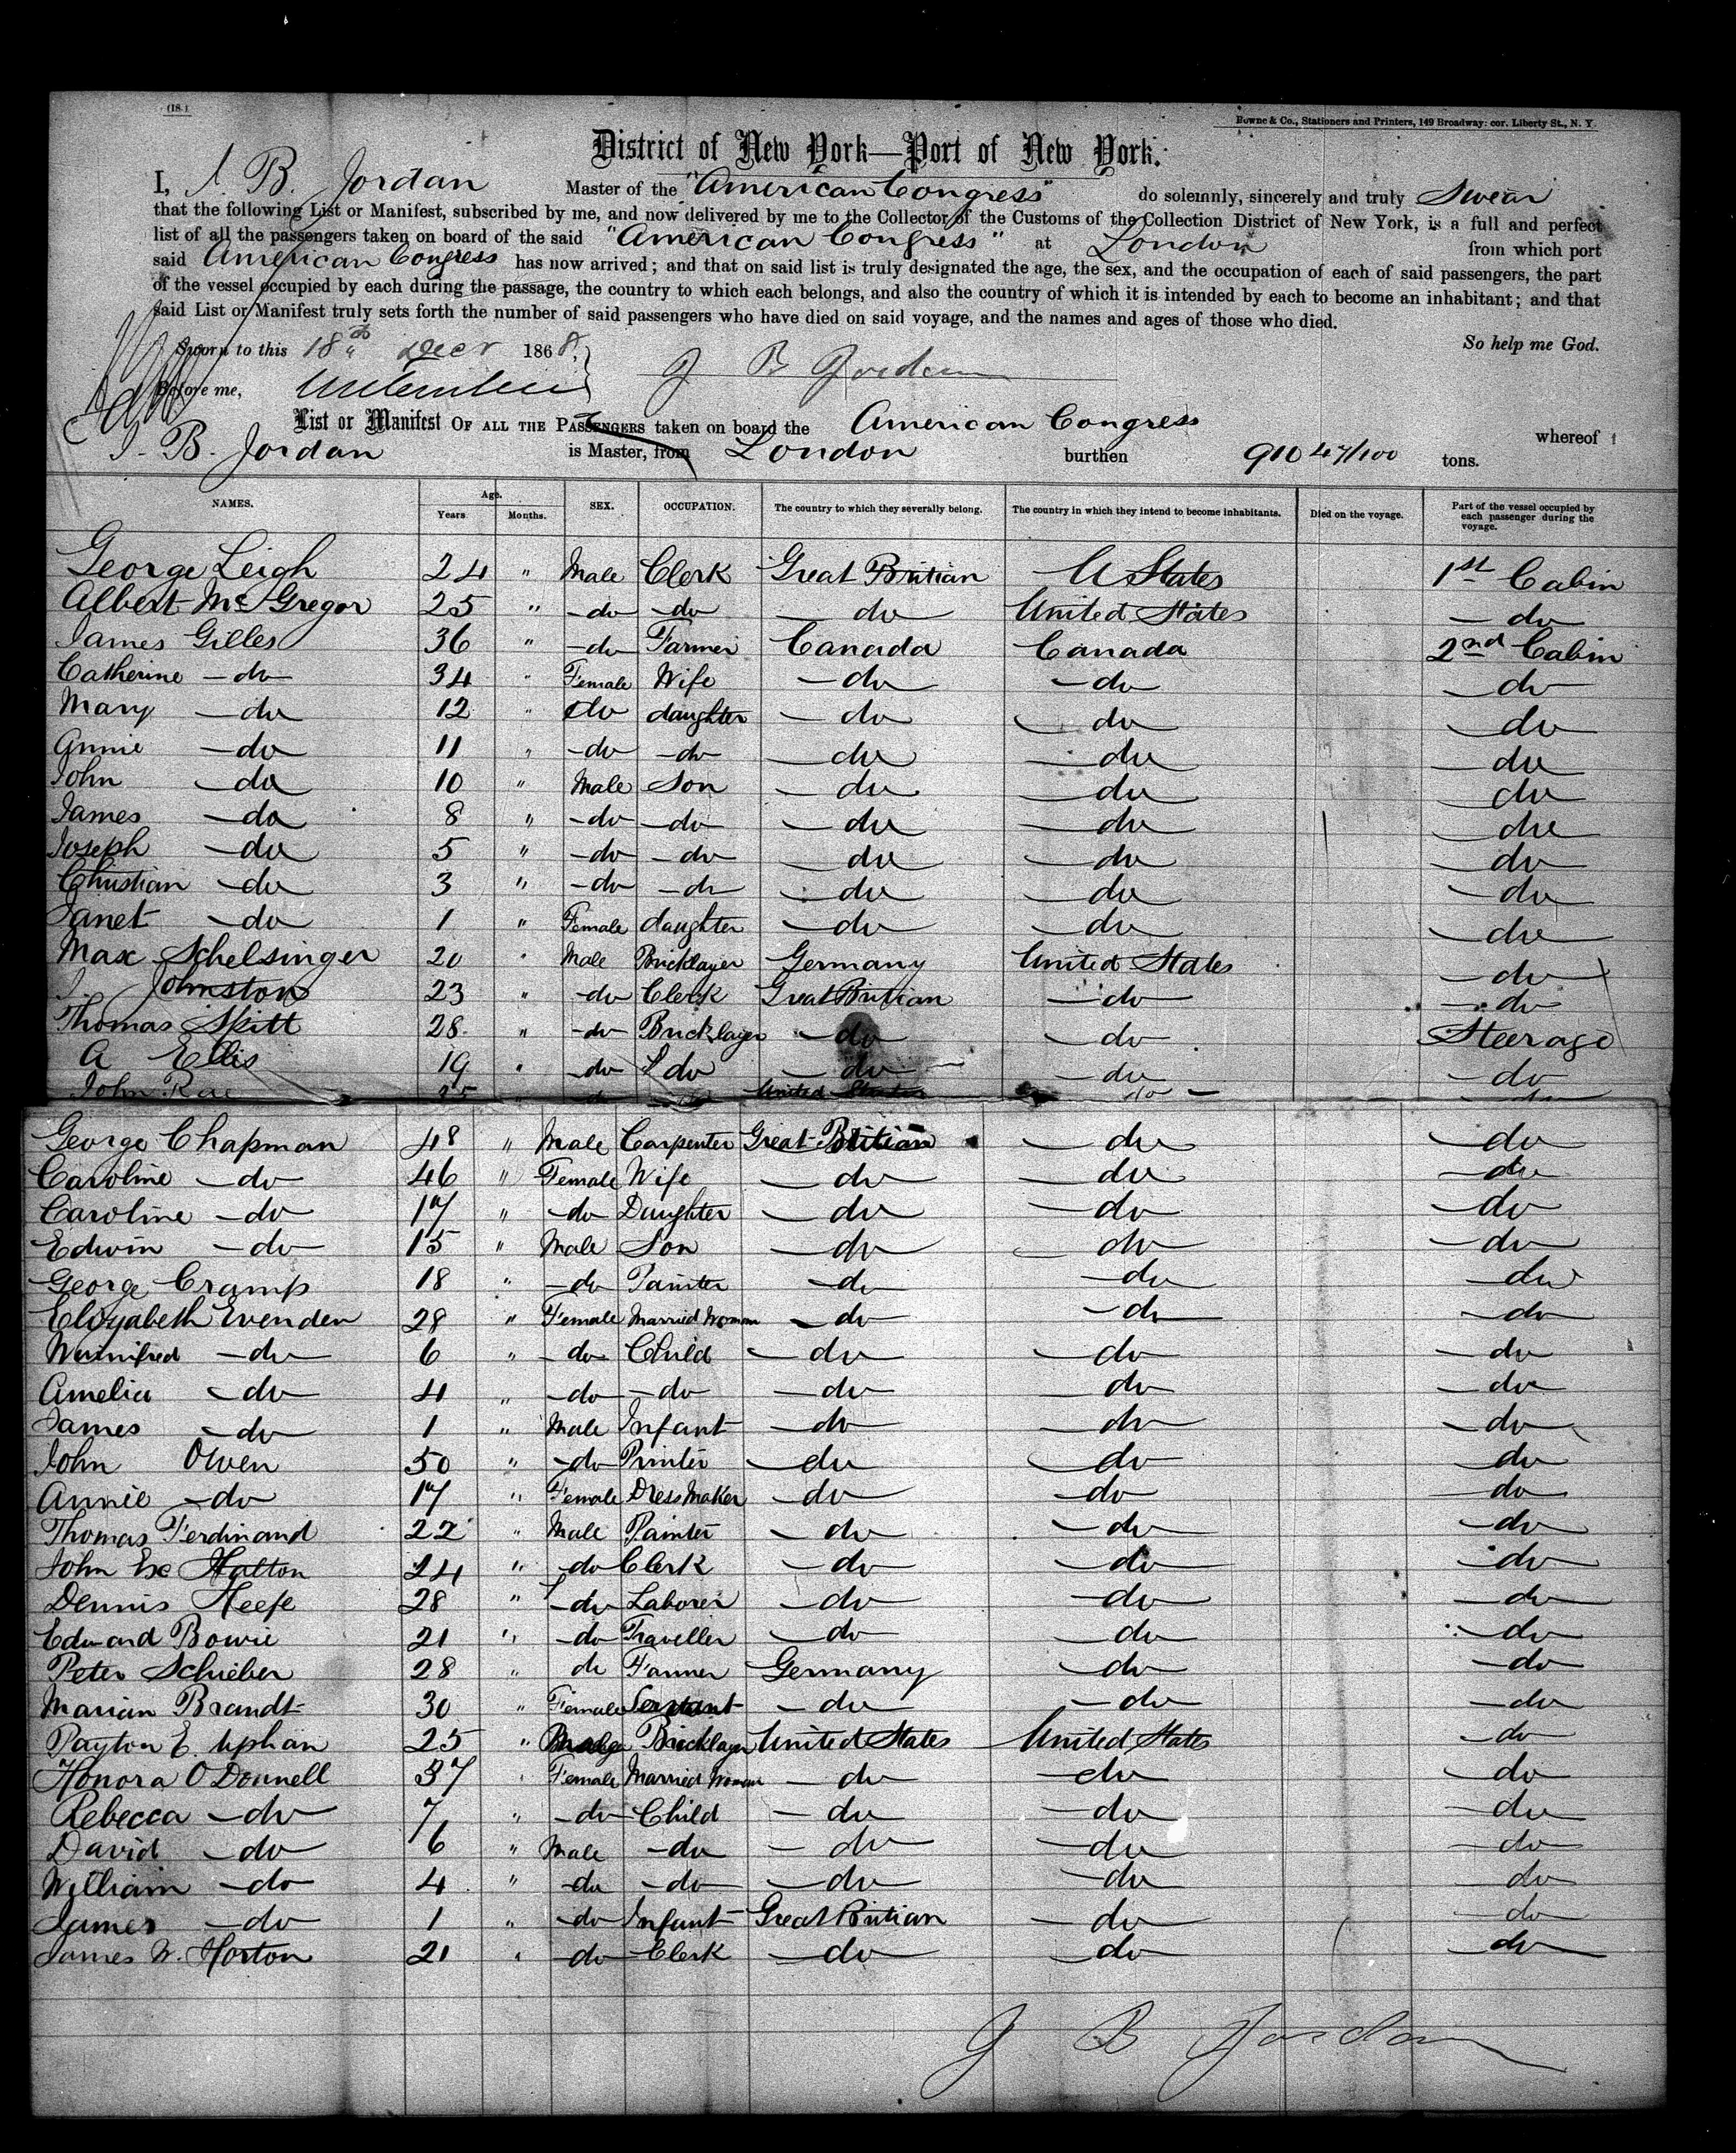 (18.)
Bowne & Co., Stationers and Printers, 149 Broadway: cor. Liberty St., N. Y.
District of New York—Port of New York.
I, J. B. Jordan Master of the "American Congress" do solemnly, sincerely and truly Swear
that the following List or Manifest, subscribed by me, and now delivered by me to the Collector of the Customs of the Collection District of New York, is a full and perfect
list of all the passengers taken on board of the said "American Congress" at London from which port
said American Congress has now arrived; and that on said list is truly designated the age, the sex, and the occupation of each of said passengers, the part
of the vessel occupied by each during the passage, the country to which each belongs, and also the country of which it is intended by each to become an inhabitant; and that
said List or Manifest truly sets forth the number of said passengers who have died on said voyage, and the names and ages of those who died.
So help me God.
Sworn to this 18th Decr 1868,
J B Jordan
Before me,
List or Manifest OF ALL THE PASSENGERS taken on board the American Congress whereof
J. B. Jordan is Master, from London burthen 910 47/100 tons.
NAMES. Age. Years Months. SEX. OCCUPATION. The country to which they severally belong. The country in which they intend to become inhabitants. Died on the voyage. Part of the vessel occupied by each passenger during the voyage.
George Leigh 24 " Male Clerk Great Britian U States 1st Cabin
Albert McGregor 25 " do do do United States do
James Gilles 36 " do Farmer Canada Canada 2nd Cabin
Catherine do 34 " Female Wife do do do
Mary do 12 " do daughter do do do
Annie do 11 " do do do do do
John do 10 " Male Son do do do
James do 8 " do do do do do
Joseph do 5 " do do do do do
Christian do 3 " do do do do do
Janet do 1 " Female daughter do do do
Max Schelsinger 20 " Male Bricklayer Germany United States do
J. Johnston 23 " do Clerk Great Britian do do
Thomas Skitt 28 " do Bricklayer do do Steerage
A Ellis 19 " do do do do do
John Rae 25 " do United States do do
George Chapman 48 " Male Carpenter Great Britian do do
Caroline do 46 " Female Wife do do do
Caroline do 17 " do Daughter do do do
Edwin do 15 " Male Son do do do
George Cramp 18 " do Painter do do do
Elizabeth Evenden 28 " Female Married Woman do do do
Winnifred do 6 " do Child do do do
Amelia do 4 " do do do do do
James do 1 " Male Infant do do do
John Owen 50 " do Printer do do do
Annie do 17 " Female Dress Maker do do do
Thomas Ferdinand 22 " Male Painter do do do
John Halton 24 " do Clerk do do do
Dennis Keefe 28 " do Laborer do do do
Edward Bowie 21 " do Traveller do do do
Peter Schieber 28 " do Farmer Germany do do
Marian Brandt 30 " Female Servant do do do
Payton E. Uphan 25 " Male Bricklayer United States United States do
Honora O Donnell 37 " Female Married Woman do do do
Rebecca do 7 " do Child do do do
David do 6 " Male do do do do
William do 4 " do do do do do
James do 1 " do Infant Great Britian do do
James W. Horton 21 " do Clerk do do do
J B Jordan